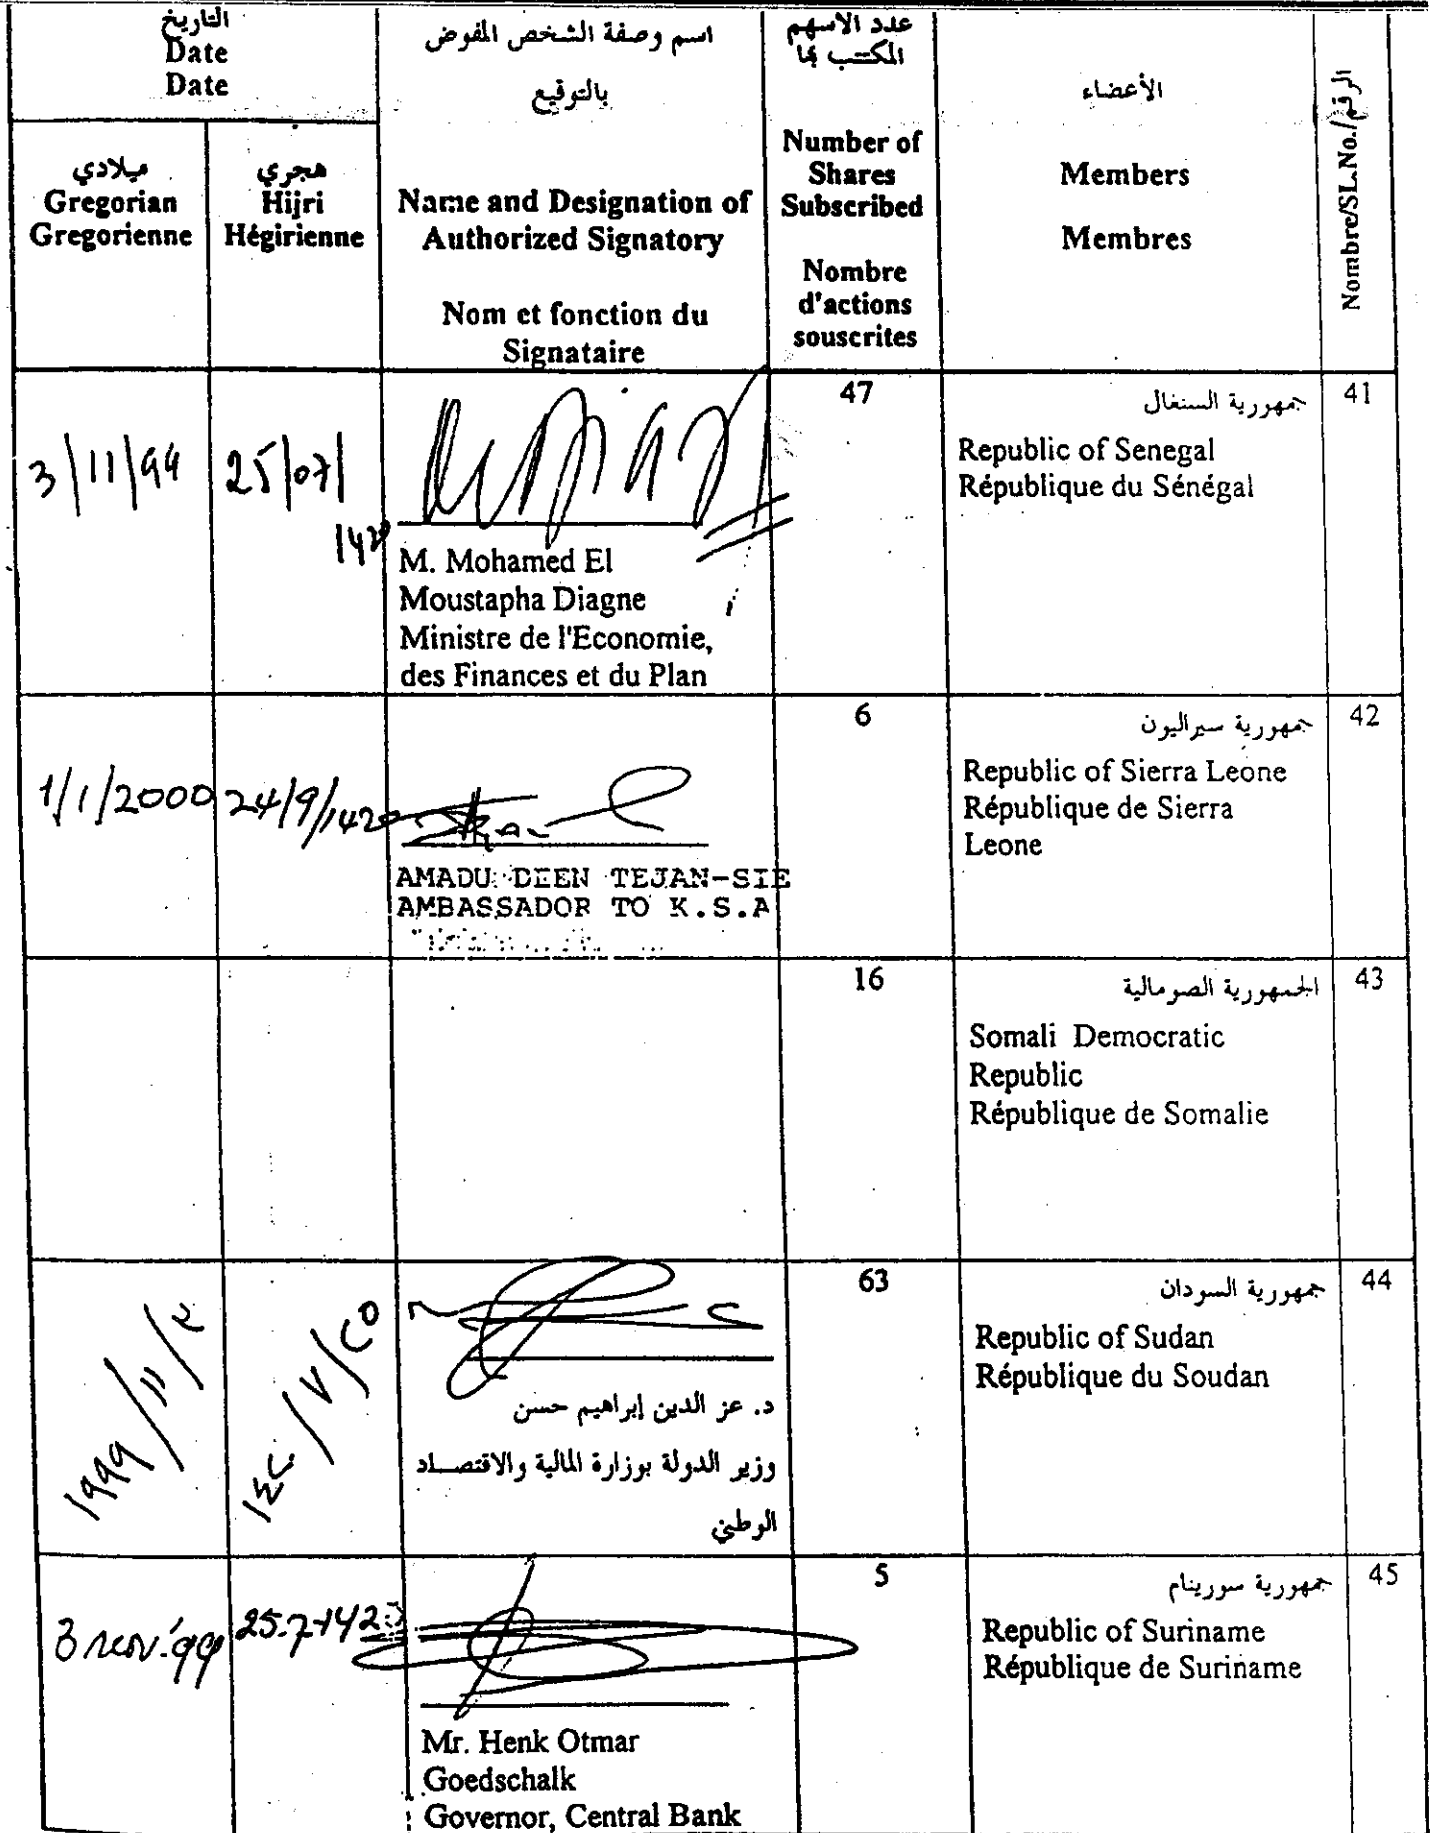 التاريخ
Date
Date
اسم وصفة الشخص المفوض
بالتوقيع
Name and Designation of
Authorized Signatory
Nom et fonction du
Signataire
عدد الاسهم
المكتتب بها
Number of
Shares
Subscribed
Nombre
d'actions
souscrites
الأعضاء
Members
Membres
الرقم/Nombre/SL.No.
ميلادي
Gregorian
Gregorienne
هجري
Hijri
Hégirienne
3/11/99
25/07/
1420
M. Mohamed El
Moustapha Diagne
Ministre de l'Economie,
des Finances et du Plan
47
جمهورية السنغال
Republic of Senegal
République du Sénégal
41
1/1/2000
24/9/1420
AMADU DEEN TEJAN-SIE
AMBASSADOR TO K.S.A
6
جمهورية سيراليون
Republic of Sierra Leone
République de Sierra
Leone
42
16
الجمهورية الصومالية
Somali Democratic
Republic
République de Somalie
43
١٩٩٩/١١/٣
١٤٢٠/٧/٢٥
د. عز الدين إبراهيم حسن
وزير الدولة بوزارة المالية والاقتصاد
الوطني
63
جمهورية السودان
Republic of Sudan
République du Soudan
44
3 nov. '99
25-7-1420
Mr. Henk Otmar
Goedschalk
Governor, Central Bank
5
جمهورية سورينام
Republic of Suriname
République de Suriname
45